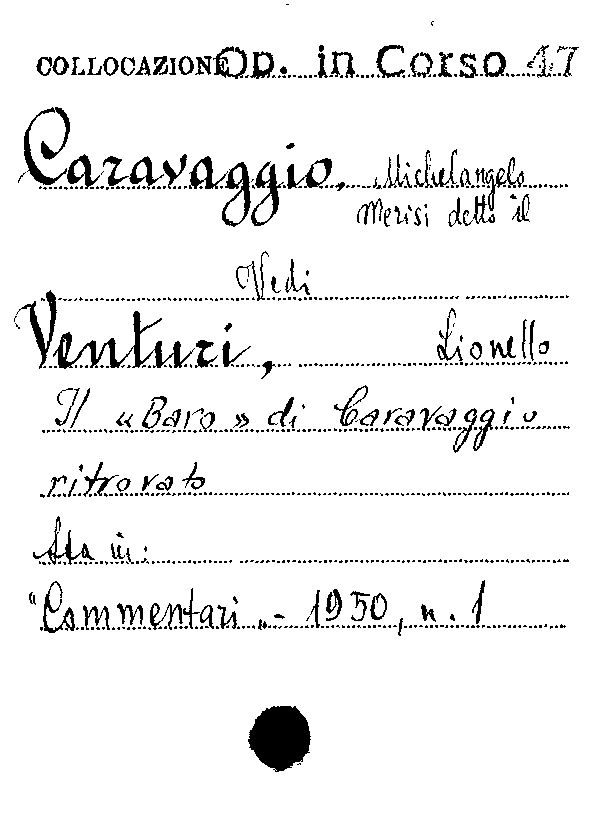 COLLOCAZIONE Op. in Corso 47
Caravaggio, Michelangelo
Merisi detto il
Vedi
Venturi, Lionello
Il «Baro» di Caravaggio
ritrovato
Sta in:
"Commentari„ - 1950, n. 1